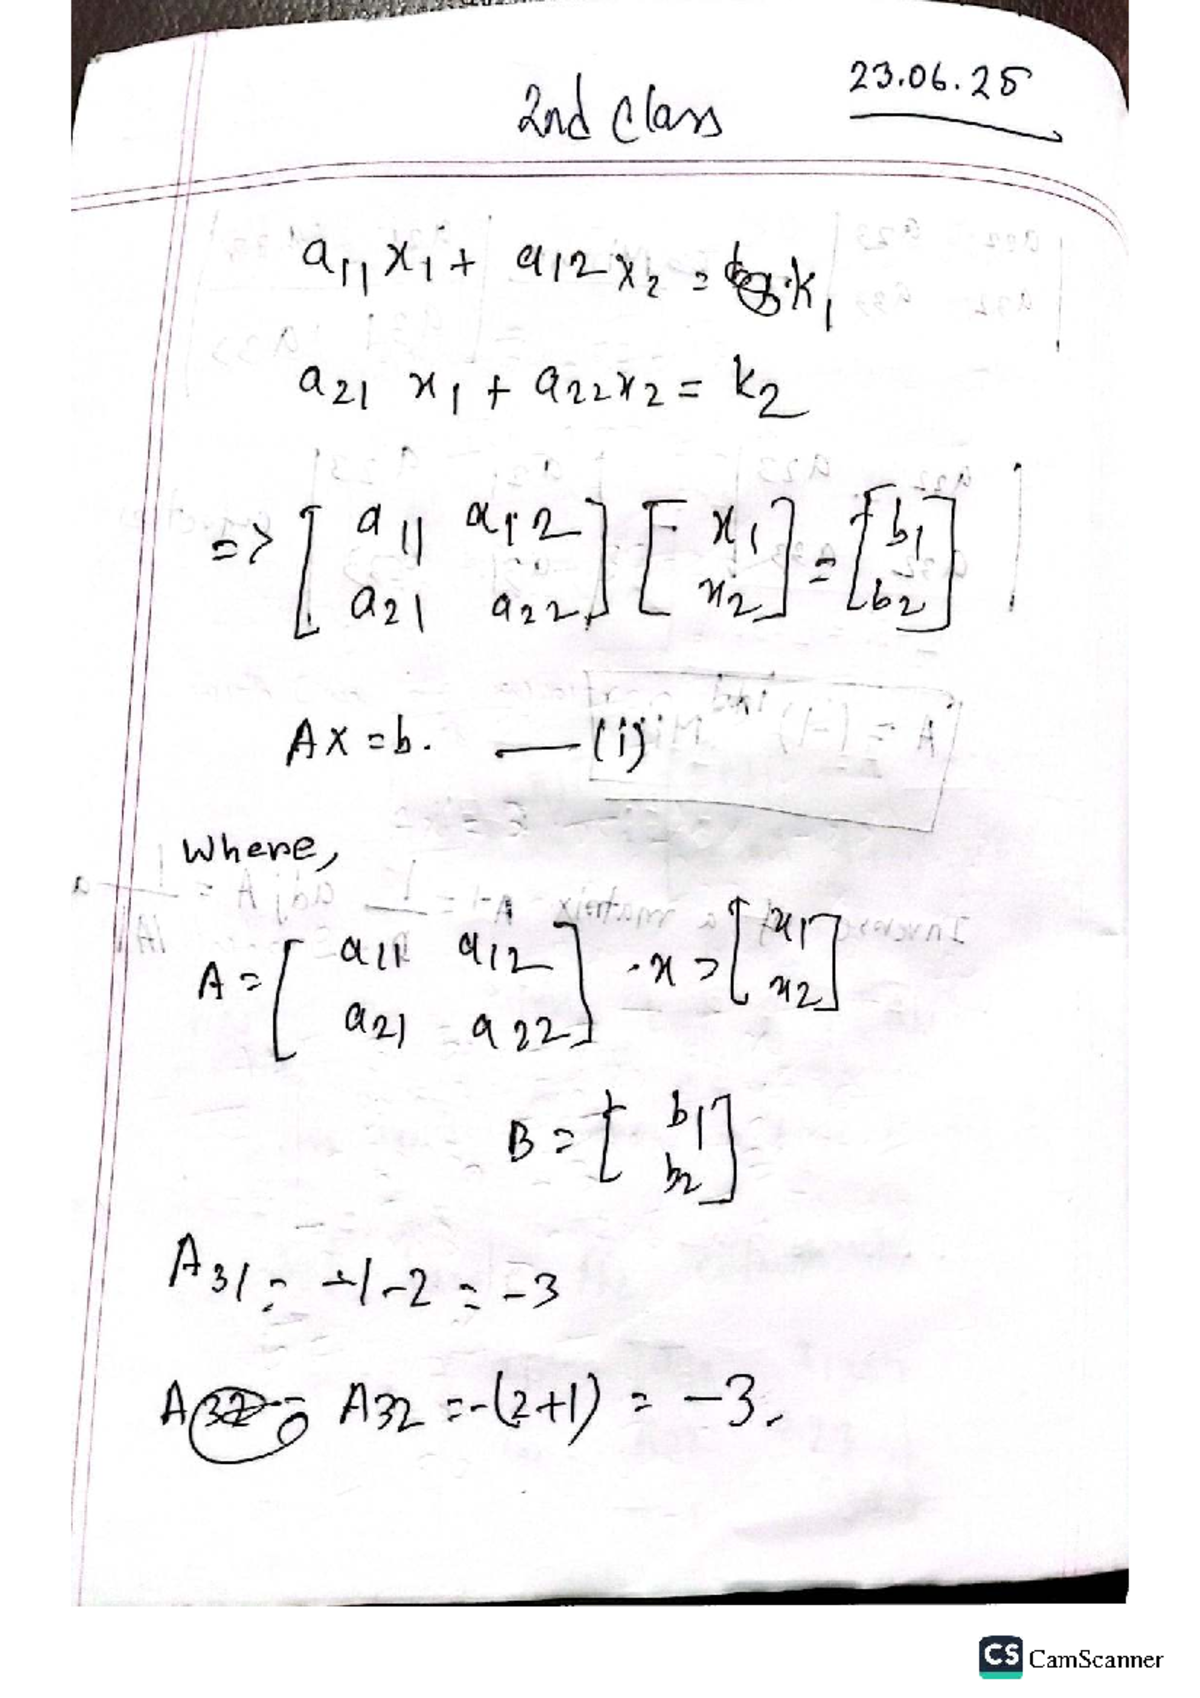 23.06.25
2nd Class
a11 x1 + a12 x2 = k1
a21 x1 + a22 x2 = k2
=> [ a11 a12 ] [ x1 ] = [ b1 ]
[ a21 a22 ] [ x2 ] [ b2 ]
AX = b. —(i)
Where,
A = [ a11 a12 ] . x = [ x1 ]
[ a21 a22 ] [ x2 ]
B = [ b1 ]
[ b2 ]
A31 = -1-2 = -3
A32 = A32 = -(2+1) = -3.
CS CamScanner